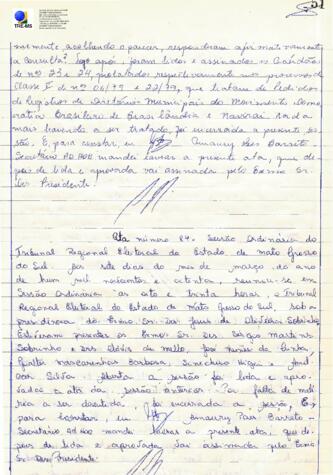 TRE-MS
nimemente, acolhendo o parecer, responderam afirmativamente
a consulta. Logo após, foram lidos e assinados os Acórdãos
de nºs 23 e 24, prolatados respectivamente nos processos da
Classe I de nºs 06/79 e 22/79, que tratam de pedidos
de registros de Diretórios Municipais do Movimento Demo
crático Brasileiro de Brasilândia e Naviraí. Nada
mais havendo a ser tratado, foi encerrada a presente ses
são. E, para constar, eu Amaury Pais Barreto
Secretário AD HOC mandei lavrar a presente ata, que de
pois de lida e aprovada vai assinada pelo Exmo Sr.
Des. Presidente.
Ata número 84. Sessão Ordinária do
Tribunal Regional Eleitoral do Estado de Mato Grosso
do Sul. Aos sete dias do mês de março, do ano
de hum mil novecentos e oitenta, reuniu-se em
Sessão Ordinária às oito e trinta horas, o Tribunal
Regional Eleitoral do Estado de Mato Grosso do Sul, sob a
presidência do Exmo. Sr. Des. Jesus de Oliveira Sobrinho.
Estiveram presentes os Exmos. Srs. Des. Sérgio Martins
Sobrinho e Drs. de Mello, José Nunes da Cunha
Vasconcelos Barbosa, e
Silva. Aberta a sessão foi lida e apro
vada a ata da sessão anterior. Por falta de maté
ria a ser discutida, foi encerrada a sessão. E,
para constar eu Amaury Pais Barreto
Secretário AD HOC mandei lavrar a presente ata, que de
pois de lida e aprovada vai assinada pelo Exmo
Sr. Des. Presidente.